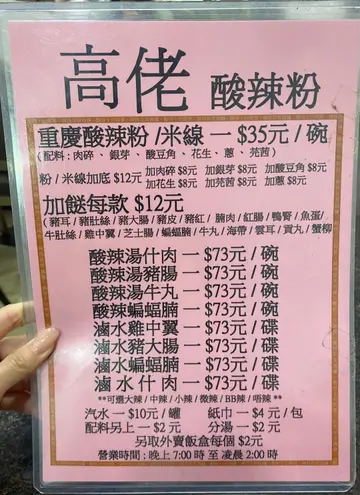 高佬 酸辣粉
重慶酸辣粉 /米線 一 $35元 / 碗
( 配料 : 肉碎 、銀芽 、酸豆角 、花生 、蔥 、芫茜 )
粉 / 米線加底 $12元 加肉碎 $8元 加銀芽 $8元 加酸豆角 $8元
加花生 $8元 加芫茜 $8元 加蔥 $8元
加餸每款 $12元
( 豬耳 / 豬肚絲 / 豬大腸 / 豬皮 / 豬紅 / 腩肉 / 紅腸 / 鴨腎 / 魚蛋 /
牛肚絲 / 雞中翼 / 芝士腸 / 蝙蝠腩 / 牛丸 / 海帶 / 雲耳 / 貢丸 / 蟹柳
酸辣湯什肉 一 $73元 / 碗
酸辣湯豬腸 一 $73元 / 碗
酸辣湯牛丸 一 $73元 / 碗
酸辣蝙蝠腩 一 $73元 / 碗
滷水雞中翼 一 $73元 / 碟
滷水豬大腸 一 $73元 / 碟
滷水蝙蝠腩 一 $73元 / 碟
滷水什肉 一 $73元 / 碟
**可選大辣 / 中辣 / 小辣 / 微辣 / BB辣 / 唔辣 **
汽水 一 $10元 / 罐 紙巾 一 $4 元 / 包
配料另上 一 $2 元 分湯 一 $2 元
另取外賣飯盒每個 $2元
營業時間 : 晚上 7:00 時 至 凌晨 2:00 時